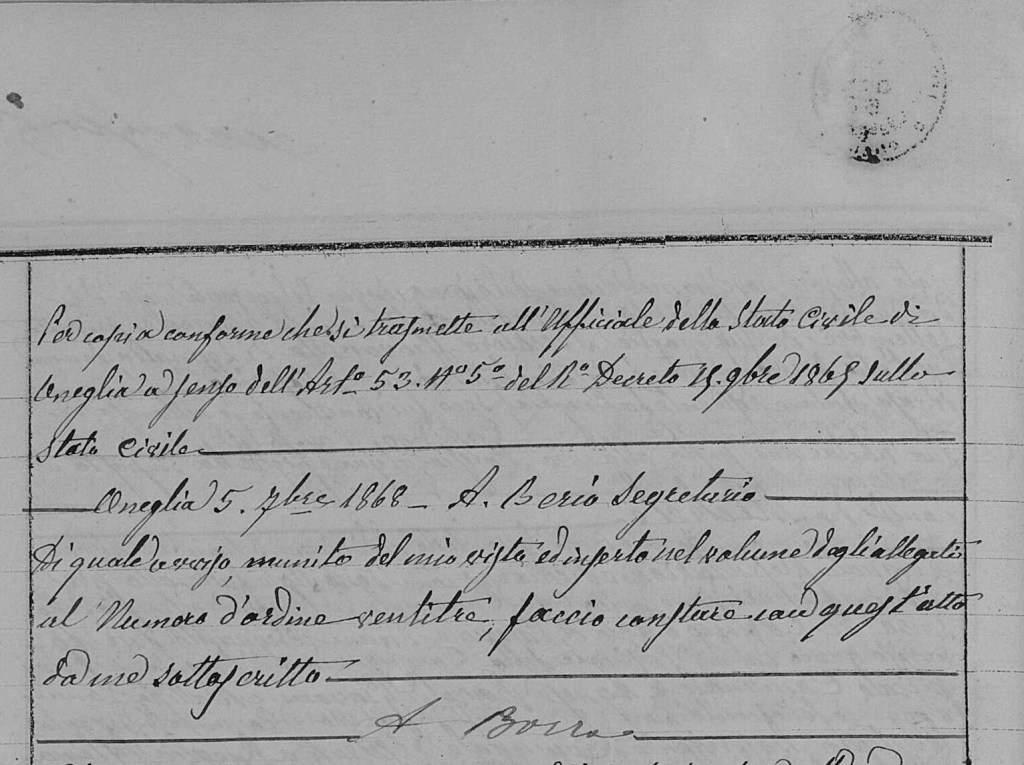 Per copia conforme che si trasmette all'Ufficiale dello Stato Civile di
Oneglia a senso dell'Art.o 53. No 5o del Ro Decreto 15. 9bre 1865 sullo
Stato Civile
Oneglia 5. 7bre 1868 - A. Berio Segretario
Di quale avviso, munito del mio visto, ed inserto nel volume degli allegati
al Numero d'ordine ventitre, faccio constare con quest'atto
da me sottoscritto
A